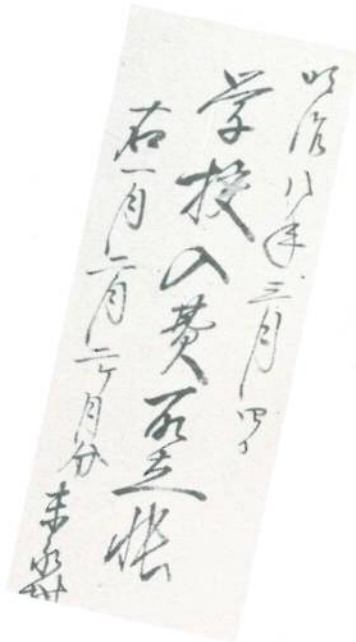 明治八年三月四日
学校入費取立帳
右一月二月二ケ月分